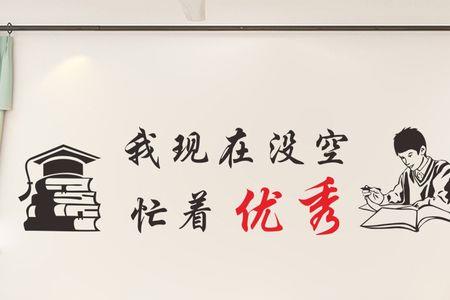 我现在没空
忙着优秀